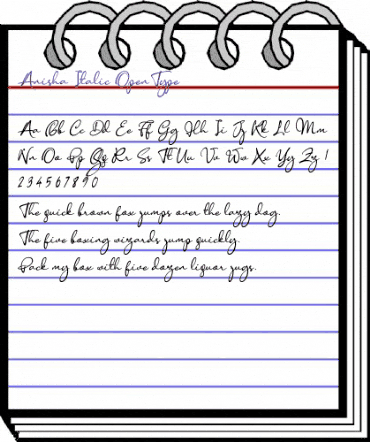 Anisha Italic Open Type
Aa Bb Cc Dd Ee Ff Gg Hh Ii Jj Kk Ll Mm
Nn Oo Pp Qq Rr Ss Tt Uu Vv Ww Xx Yy Zz 1
2 3 4 5 6 7 8 9 0
The quick brown fox jumps over the lazy dog.
The five boxing wizards jump quickly.
Pack my box with five dozen liquor jugs.